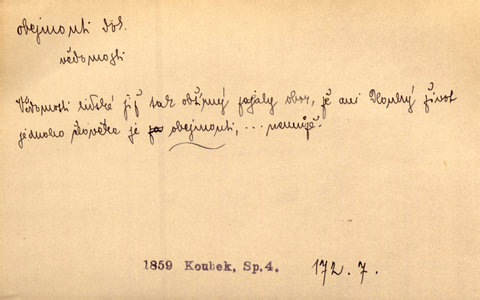 obejmouti dok.
vědomosti
Vědomosti lidské již tak obšírný zajaly obor, že ani dlouhý život
jednoho člověka je obejmouti, ... nemůže.
1859 Koubek, Sp.4. 172. 7.